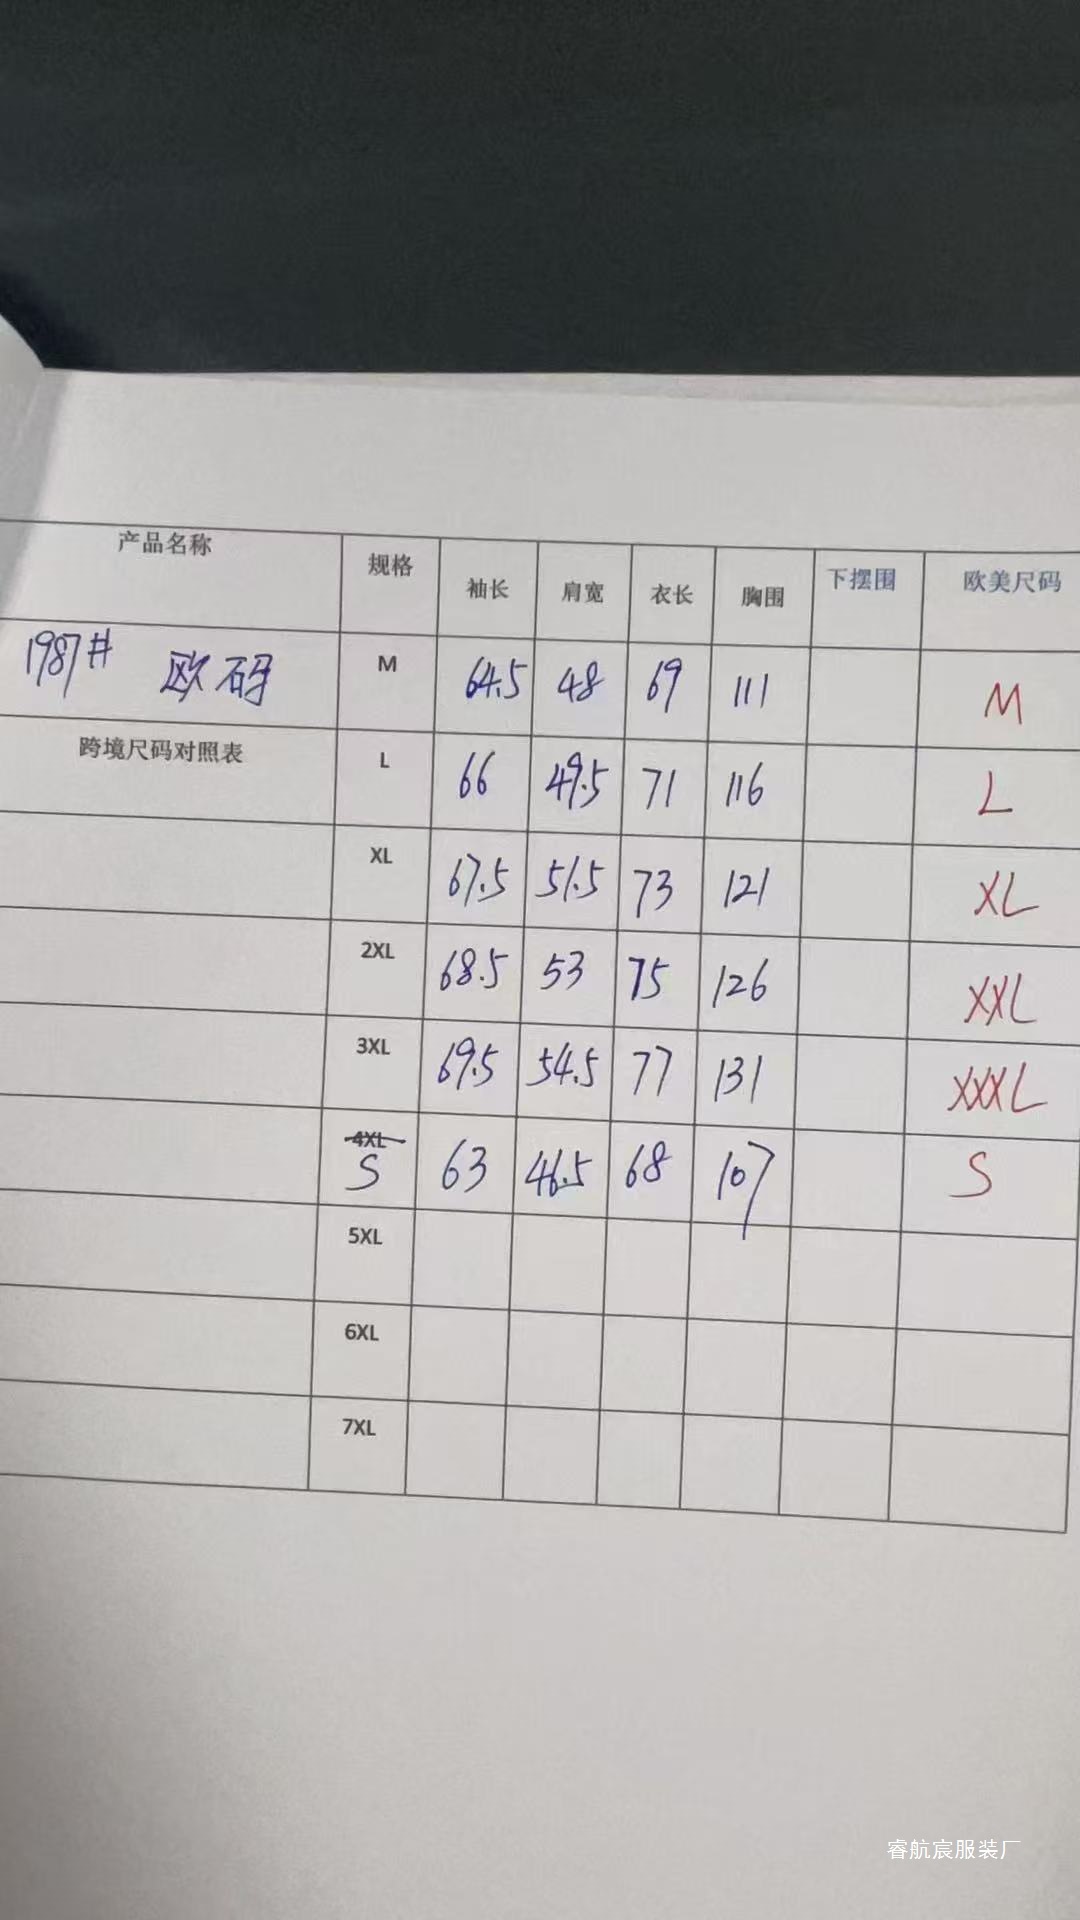 产品名称 规格 袖长 肩宽 衣长 胸围 下摆围 欧美尺码
1987# 欧码 M 64.5 48 69 111 M
跨境尺码对照表 L 66 49.5 71 116 L
XL 67.5 51.5 73 121 XL
2XL 68.5 53 75 126 XXL
3XL 69.5 54.5 77 131 XXXL
4XL
S 63 46.5 68 107 S
5XL
6XL
7XL
睿航宸服装厂